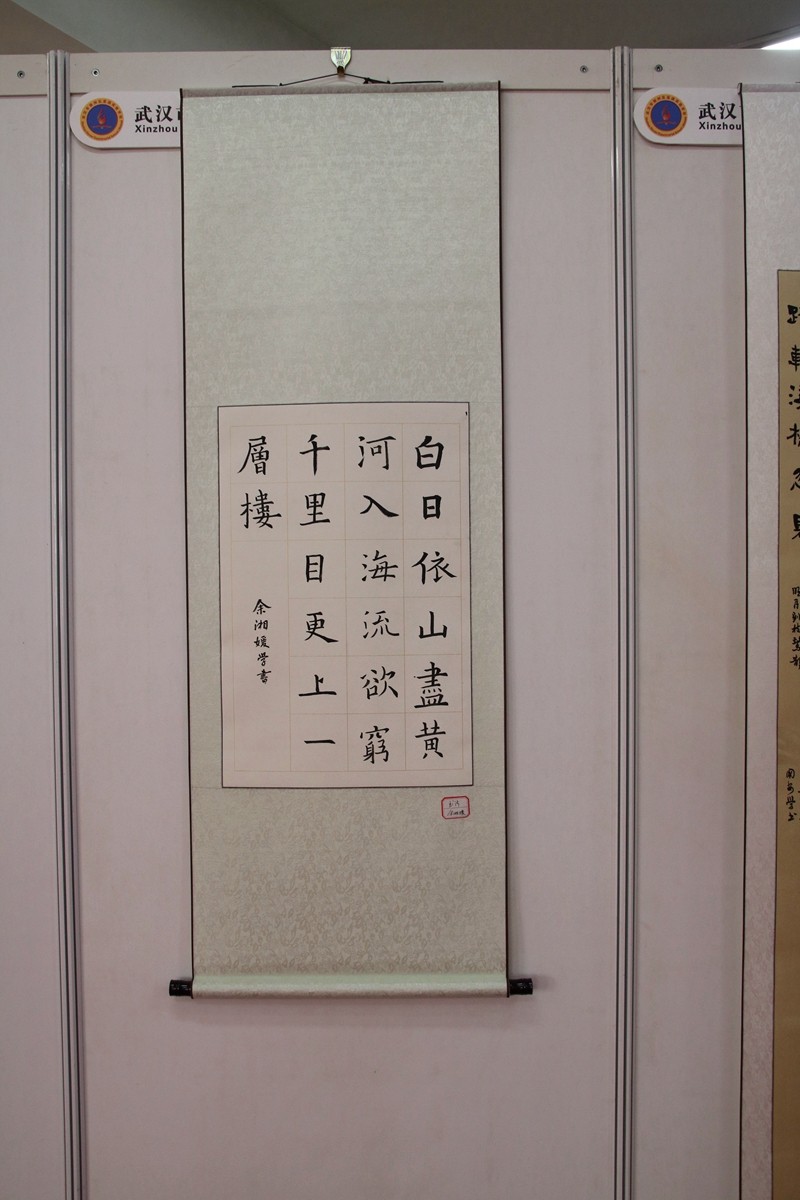 白日依山盡黄
河入海流欲窮
千里目更上一
層樓
余湘媛学書
武汉
Xinzhou
武汉
Xinzhou